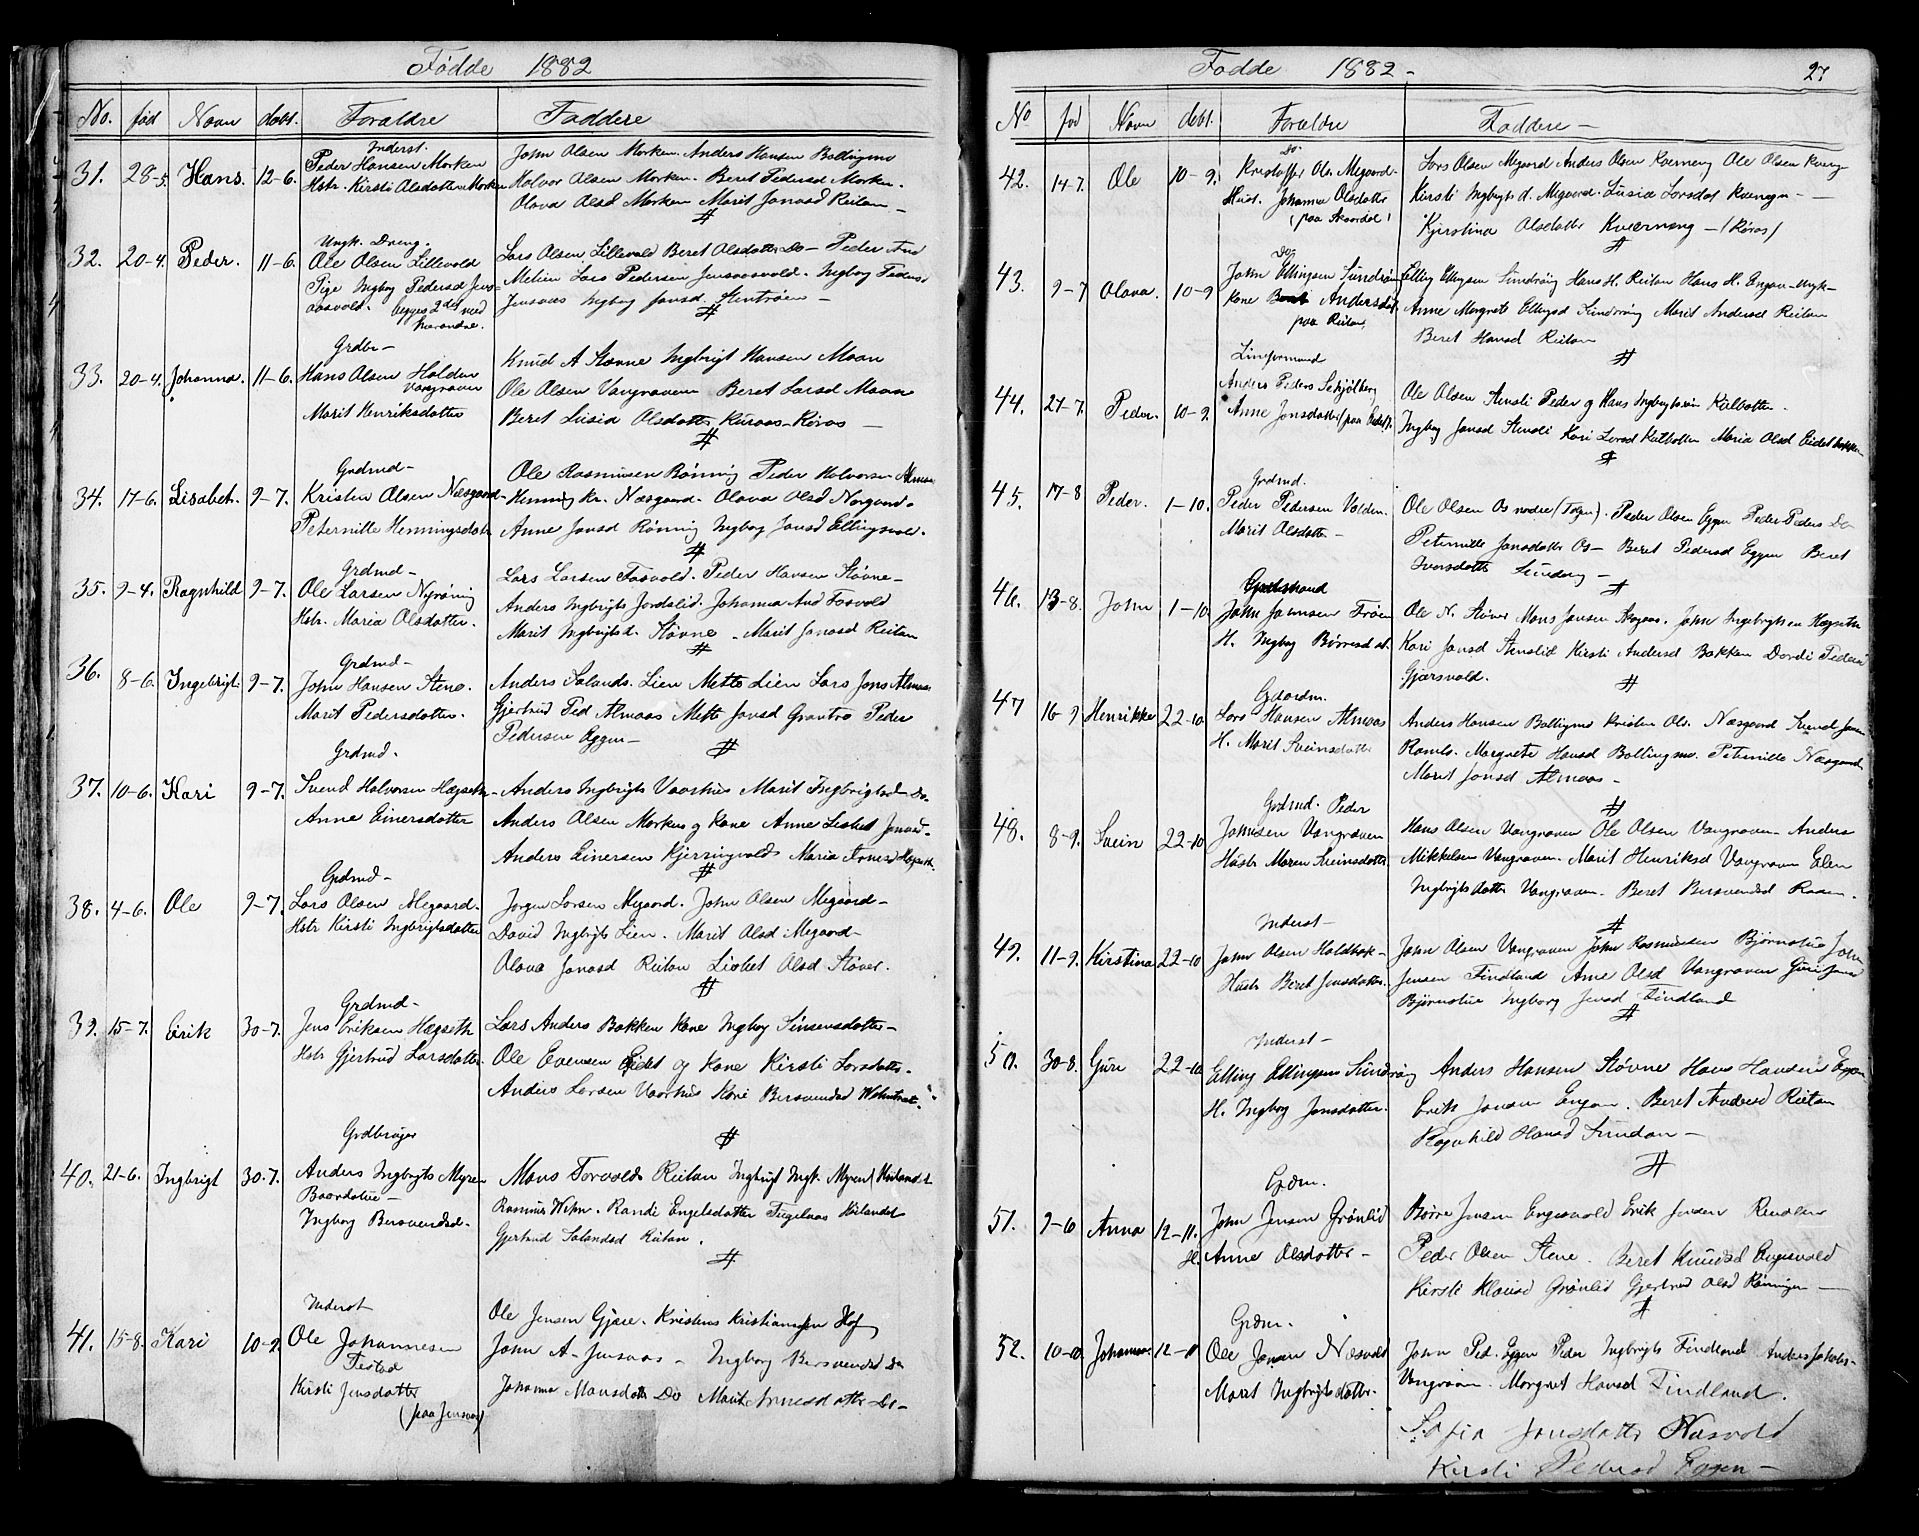 Fødde 1882
No. fød Navn døbt. Forældre Faddere
Inderst.
31. 28-5. Hans. 12-6. Peder Hansen Morken John Olsen Morken. Anders Hansen Bollingmo
Hstr. Kirsti Olsdatter Morken Halvor Olsen Morken. Beret Pedersd Morken.
Olava Olsd Morken Marit Jonasd Reitan -
#
Ungk. Dreng.
32. 20-4. Peder. 11-6. Ole Olsen Lillevold Lars Olsen Lillevold Beret Olsdatter Do - Peder And
Pige Ingbor Pedersd Jens- Melien Lars Pedersen Jensaasvold. Ingbor Pedersd
aasvold. begges 2det med Jensaas Ingbor Jonsd. Stentrøen -
hverandre. #
Grdbr -
33. 20-4. Johanna. 11-6. Hans Olsen Holden Knud A Støvne Ingbrigt Hansen Moan
Vangraven Ole Olsen Vangraven Beret Larsd Moan
Marit Henriksdatter Beret Lusia Olsdatter Kuraas - Røros -
#
Grdmd -
34. 17-6. Lisabet. 9-7. Kristen Olsen Næsgaard Ole Rasmusen Rønning Peder Halvorsen Almaas
Peternille Henningsdatter Henning Kr. Næsgaard. Olava Olsd Norgaard.
Anne Jonsd Rønning Ingbor Jonsd Ellingsvold.
#
Grdmd -
35. 9-4. Ragnhild 9-7. Ole Larsen Nyrøning Lars Larsen Fosvold. Peder Hansen Støvne -
Hstr. Maria Olsdatter. Anders Ingbrigts Jordalslid. Johanna And Fosvold
Marit Ingbrigtsd. Støvne - Marit Jonasd Reitan
#
Grdmd -
36. 8-6. Ingebrigt. 9-7. John Hansen Stene. Anders Salands. Lien Mette Lien Lars Jons Almaas
Marit Pedersdatter. Gjertrud Ped Almaas Mette Jonsd Grøntrø Peder
Pedersen Eggen - #
Grdmd.
37. 10-6. Kari 9-7. Svend Halvorsen Hægseth Anders Ingbrigts Vaarhus Marit Ingbrigtsd Do.
Anne Einersdatter Anders Olsen Morken og Kone Anne Lisbet Jonsd.
Anders Einersen Kjerringvold Maria Arnesd Hegseth.
#
Grdmd -
38. 4-6. Ole 9-7. Lars Olsen Megaard. Jørgen Larsen Megaard. John Olsen Megaard -
Hstr Kirsti Ingbrigtsdatter David Ingbrigts Lien. Marit Olsd Megaard -
Olava Jonasd Reitan Lisbet Olsd Støver.
#
Grdmd -
39. 15-7. Eirik 30-7. Jens Eriksen Hægseth Lars Anders Bakken Kone Ingbor Simensdatter -
Hstr Gjertrud Larsdatter. Ole Evensen Eidet og Kone Kirsti Larsdatter.
Anders Larsen Vaarhus Kari Bersvendsd
Grdbruger #
40. 21-6. Ingbrigt 30-7. Anders Ingbrigts Myren Mons Torvolds Reitan Ingbrigt Ingb. Myren Heilandet
Baardstue - Rasmus Wehn. Randi Engelsdatter Fuglaas Heilandet
Ingbor Bersvendsd. Gjertrud Salandsd Reitan.
#
Inderst
41. 15-8. Kari 10-9. Ole Johannesen Ole Jensen Gjære. Kristens Kristiansen Hof
Tistad John A. Jensaas - Ingbor Bersvendsd Do
Kirsti Jensdatter Johanna Monsdatter Do Marit Arnesdatter Do -
(paa Jensaas)
Fødde 1882 - 27
No fød Navn døbt. Forældre Faddere -
Do
42. 14-7. Ole 10-9. Kristoffer Ols. Megaard. Lars Olsen Megaard Anders Olsen Kverneng Ole Olsen Kverneng
Hust. Johanna Olsdatter Kirsti Ingbrigts d. Megaard. Lusia Larsdat Kverneng -
(paa Skaardal) Kjerstina Olsdatter Kværneng - (Røros)
#
Do
43. 9-7 Olava. 10-9 John Ellingsen Sundrøning Elling Ellingsen Sundrøing Hans H. Reitan Hans H. Engan - Ungk -
Kone Andersdat. Anne Margrete Ellingsd Sundrøing Marit Andersd Reitan
paa Reitan Beret Hansd Reitan
#
Linjemand
44. 27-7. Peder. 10-9. Anders Peders Schjølberg Ole Olsen Aunsli Peder og Hans Ingbrigtsen Kulbotten.
Anne Jonsdatter (paa Eidet). Ingbor Jonsd Aunsli Kari Larsd Kulbotten Maria Olsd Eidetbakken
#
Grdmd.
45. 17-8 Peder. 1-10. Peder Pedersen Volden. Ole Olsen Os nordre (Togn). Peder Olsen Eggen Peder Peders Do
Marit Olsdatter - Peternille Jonsdatter Os - Beret Pedersd Eggen Beret
Iversdatter -
#
Gaardmand
46. 13-8. John 1-10. John Johnsen Trøen Ole N. Støver Mons Jonsen Aagaas. John Ingebrigtsen Hægseth
H. Ingbor Børresd at. Kari Jonsd Aunslid Kirsti Andersd Bakken Dordi Pedersd
Gjærsvold. #
Gdaardm.
47 16-9. Henrikke 22-10 Lars Hansen Almaas Anders Hansen Bollingmo Kristen Ols. Næsgaard Svend Jonsen
H. Marit Sveinsdatter Ramlo. Margrete Hansd Bollingmo. Peternille Næsgaard
Marit Jonsd Almaas -
#
Grdmd. Peder
48. 8-9. Svein 22-10 Johnsen Vangraven Hans Olsen Vangraven Ole Olsen Vangraven - Anders
Hustr Maren Sveinsdatter Mikkelsen Vangraven. Marit Henriksd Vangraven Elen
Ingbrigtsdatter Vangraven. Beret Bersvendsd Roaen.
#
Inderst -
49. 11-9. Kirstina 22-10 John Olsen Holdbak - John Olsen Vangraven John Rasmussen Bjørnstue John
Hustr Beret Jensdatter. Jensen Findland Anne Olsd Vangraven Guri Jonsd
Bjørnstue Ingborg Jensd Findland
#
Inderst -
50. 30-8. Guri 22-10 Elling Ellingsen Sundrøing Anders Hansen Støvne Hans Hansen Engan
H. Ingbor Jonsdatter. Erik Jonsen Engan. Beret Andersd Reitan
Ragnhild Hansd Sundan -
#
Grdm.
51. 9-6 Anna 12-11. John Jensen Grønlid Børre Jensen Engesvold Erik Jensen
Anne Olsdatter - Peder Olsen Stene. Beret Knudsd Engesvold
Kirsti Hansd Grønlid Gjertrud Olsd Rønningen -
#
Grdm.
52. 10-10 Johannes 12-11 Ole Jonsen Næsvold John Ped. Eggen Peder Ingbrigts Findland Anders Jakobs-
Marit Ingbrigtsdatter. Vangraven. Margret Hansd Findland.
Sofia Jonsdatter Næsvold
Kirsti Pedersd Eggen -